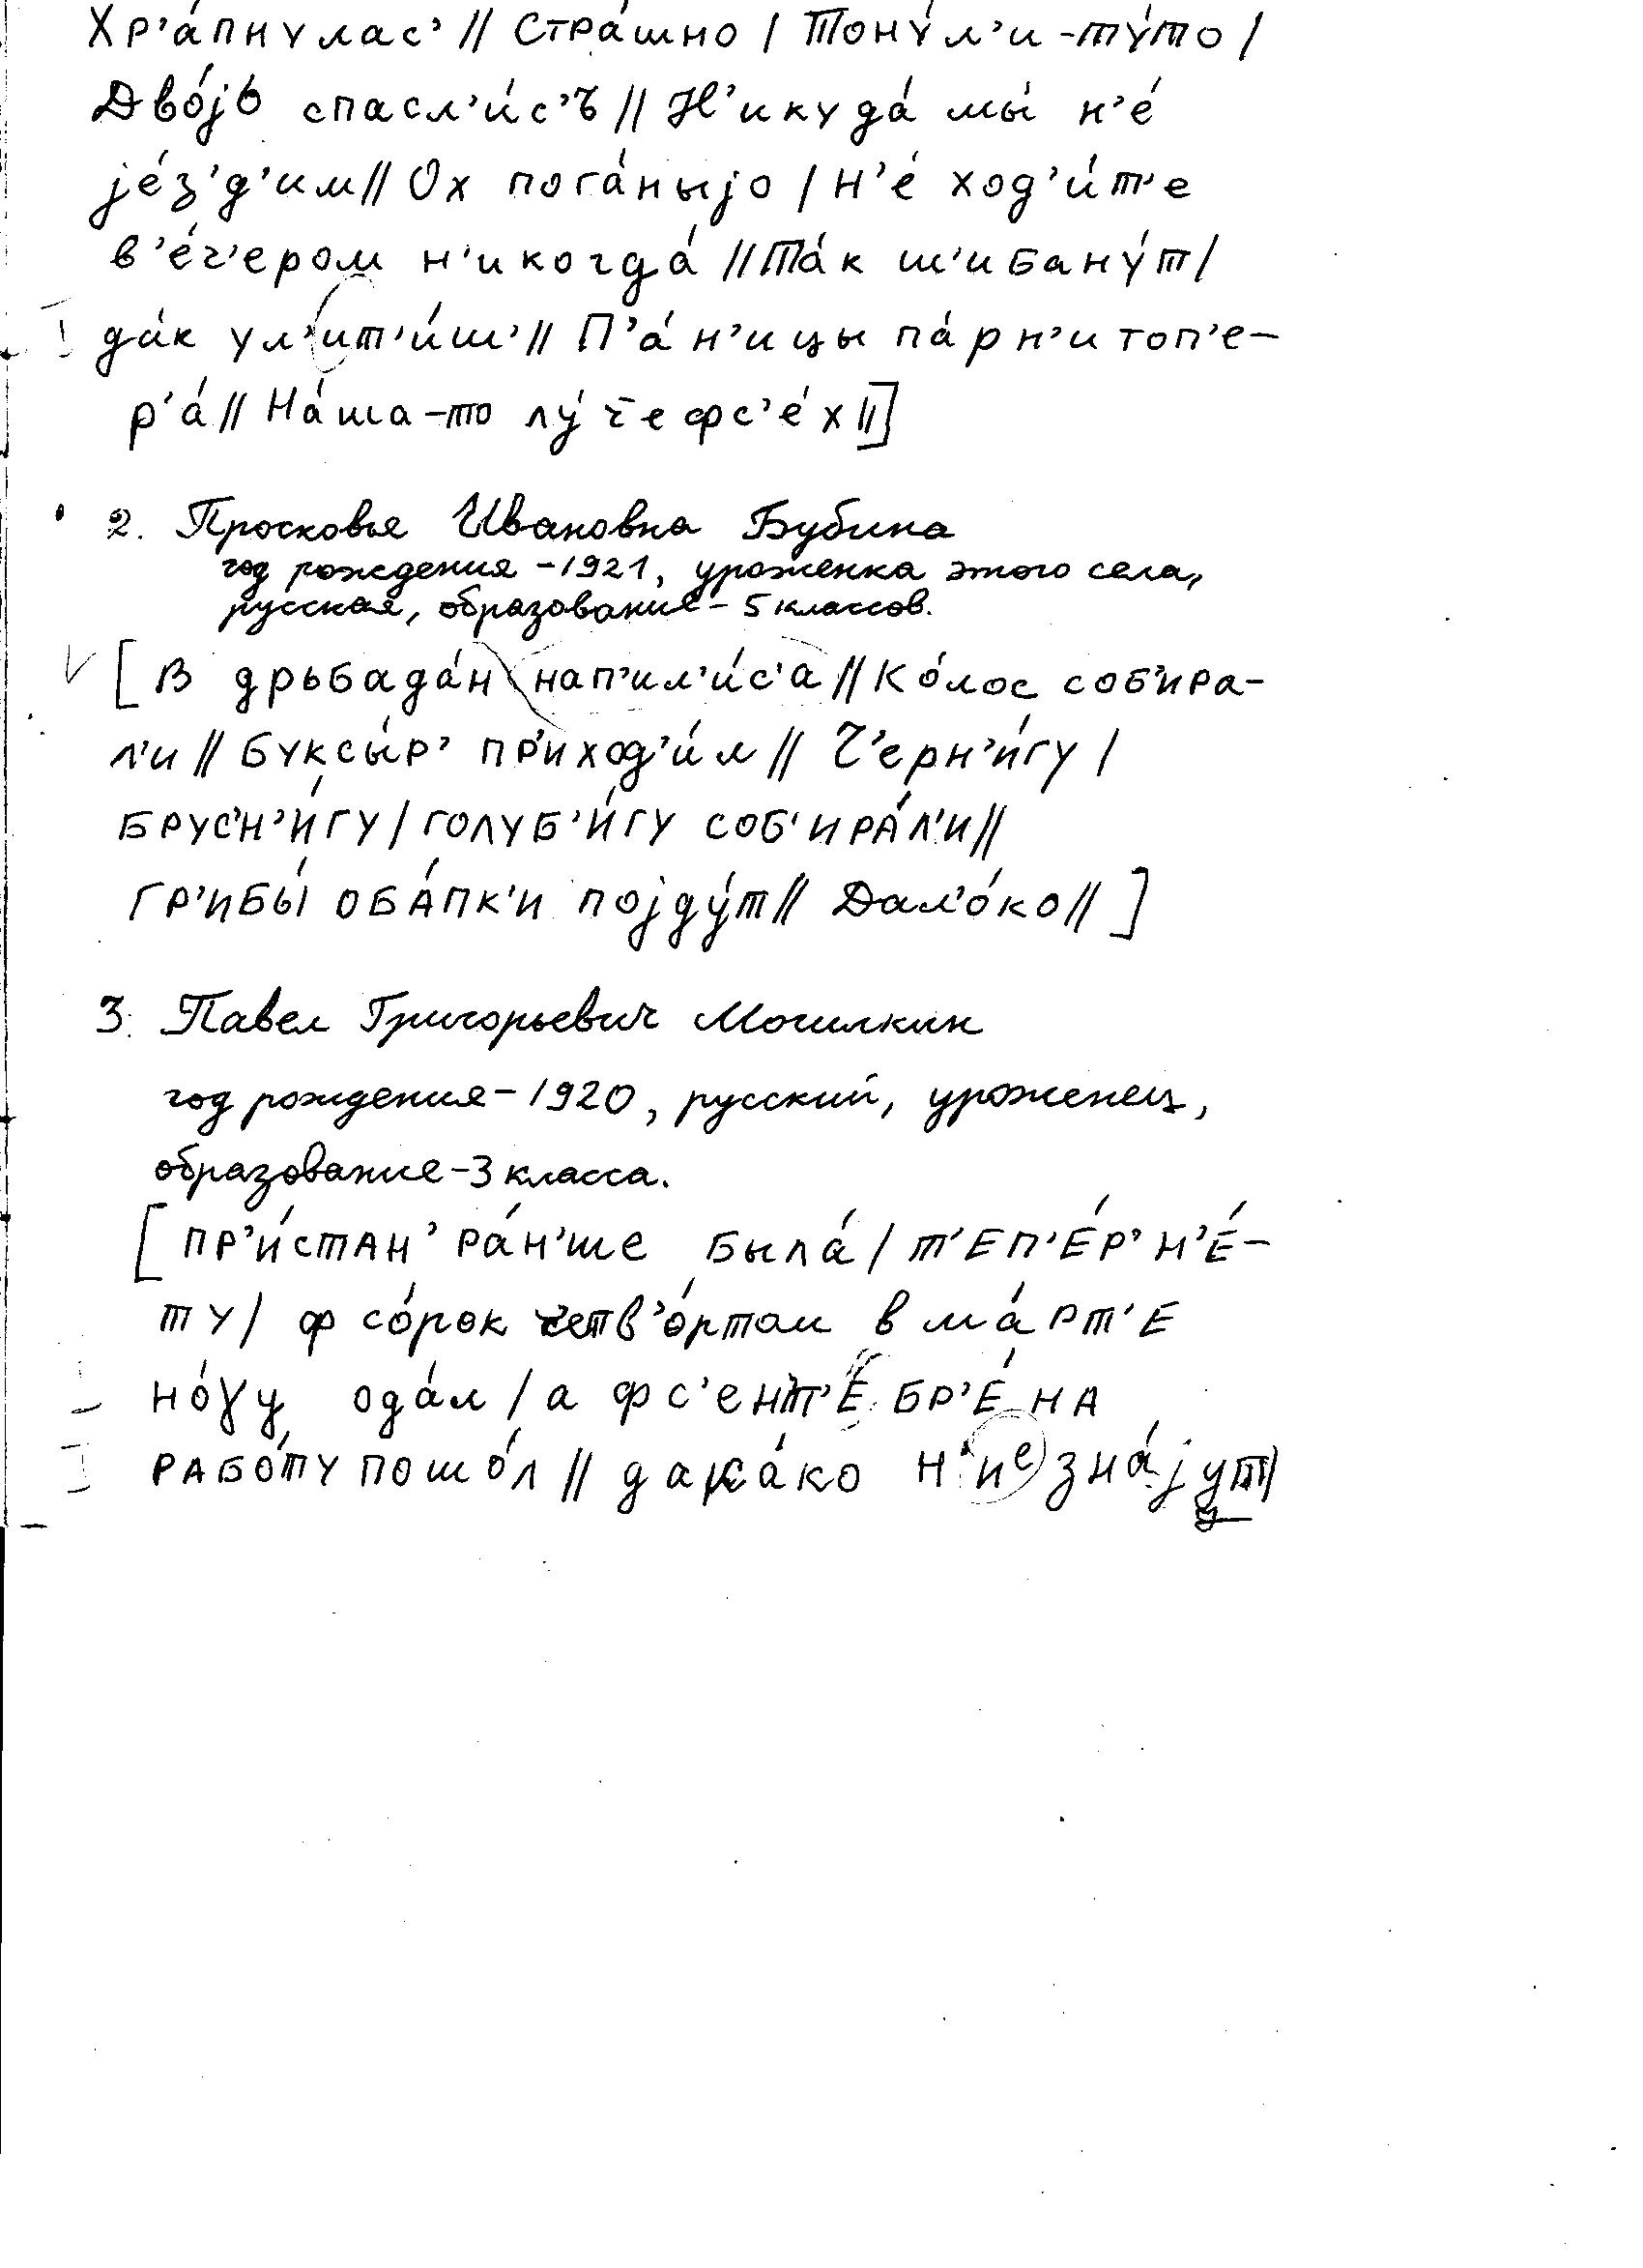 Хр'а́пнулас' // Стра́шно / Тону́л'и -ту́то /
Дво́јо спасл'и́с'ъ // Н'икуда́ мы́ н'е́
је́з'д'им // Ох пога́ныјо / н'е́ ход'и́т'е
в'е́ч'ером н'икогда́ // Та́к ш'ибану́т /
да́к ул'ит'и́ш' // П'а́н'ицы па́рн'и топ'е-
р'а́ // На́ша-то лу́че фс'е́х //]
2. Просковья Ивановна Бубина
год рождения - 1921, уроженка этого села,
русская, образование - 5 классов.
[В дрьбада́н нап'ил'и́с'а // Ко́лос соб'ира-
л'и // Буксы́р' пр'иход'и́л // Ч'ерн'и́гу /
брус'н'и́гу / голуб'и́гу соб'ира́л'и //
гр'ибы́ оба́пк'и појду́т // Дал'о́ко // ]
3. Павел Григорьевич Могилкин
год рождения - 1920, русский, уроженец,
образование - 3 класса.
[Пр'и́стан' ра́н'ше была́ / т'еп'е́р' н'е́-
ту / ф со́рок четв'о́ртом в ма́рт'е
но́γу ода́л / а ф с'ент'е́бр'е́ на
рабо́ту пошо́л // дака́ко н'ие зна́јут /